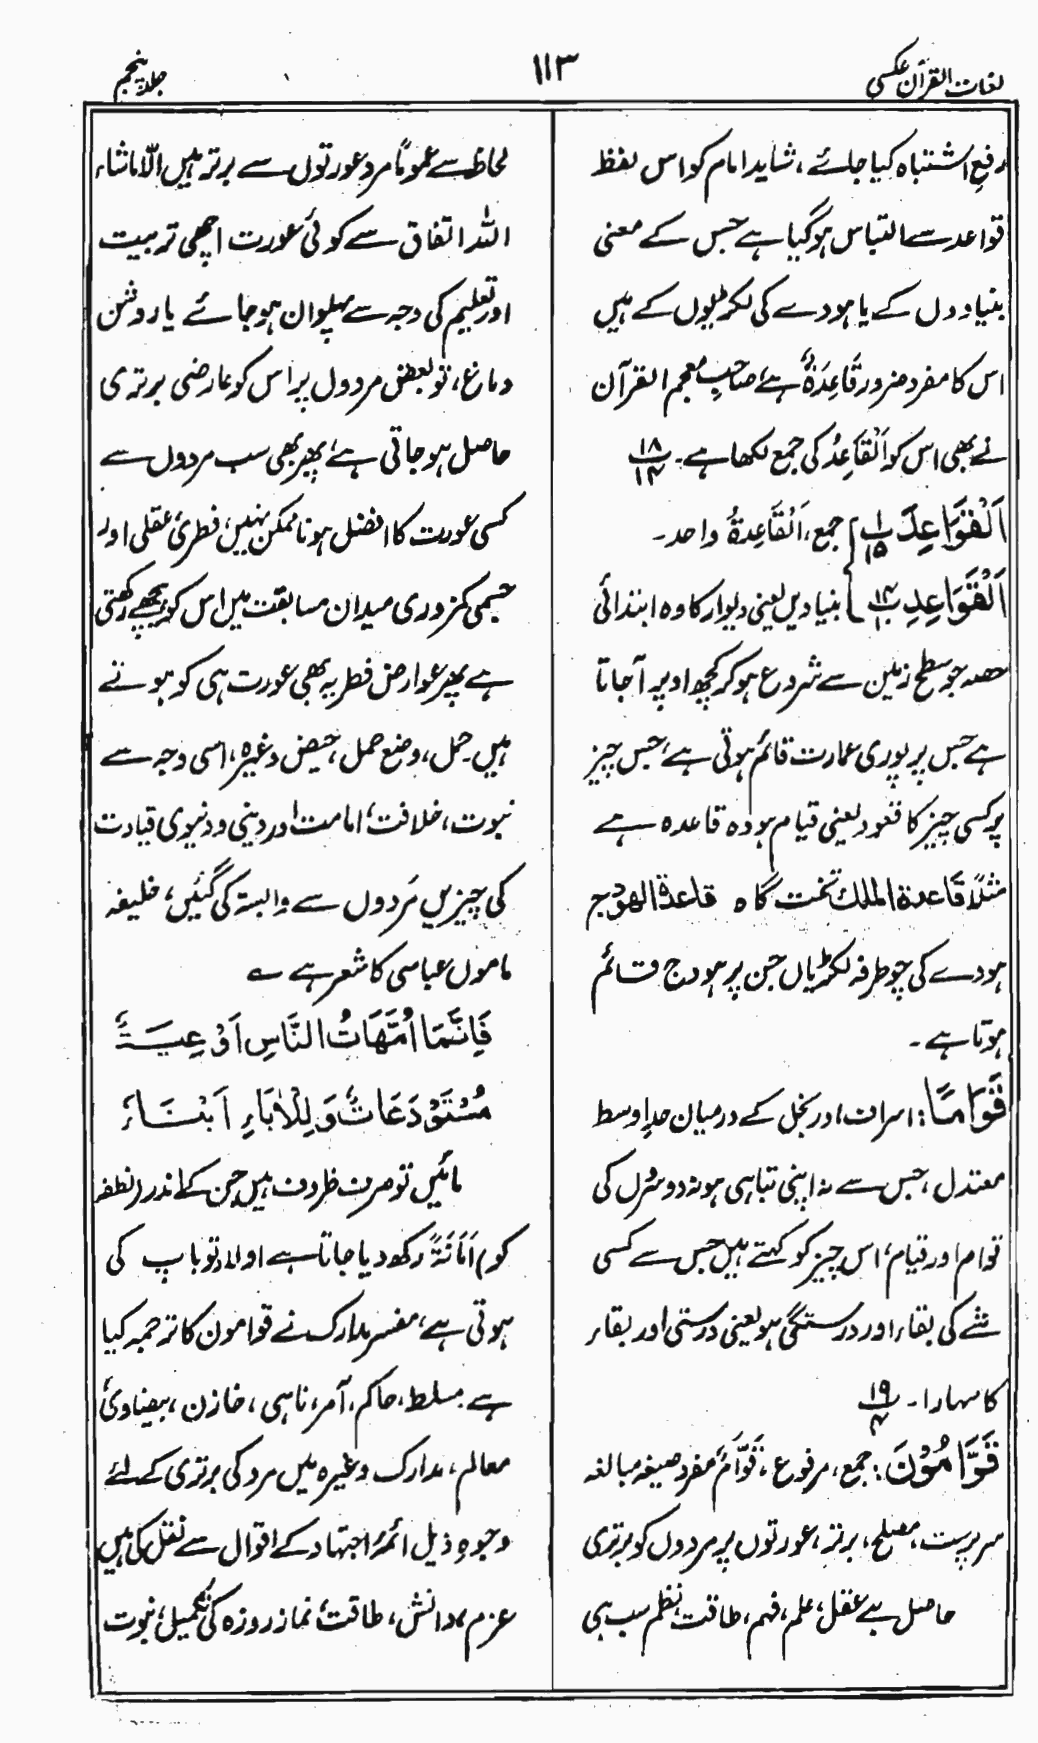 لغات القرآن عکسی
۱۱۳
جلد پنجم
رفع اشتباہ کیا جائے، شاید امام کو اس لفظ
قواعد سے التباس ہو گیا ہے جس کے معنی
بنیادوں کے یا ہودے کی لکڑیوں کے ہیں
اس کا مفرد ضرور قَاعِدَةٌ ہے، صاحبِ معجم القرآن
نے بھی اس کو اَلْقَاعِدُ کی جمع لکھا ہے۔ ۱۸/۱۴
اَلْقَوَاعِدَ ۱/۱۵ جمع، اَلْقَاعِدَةُ واحد۔
اَلْقَوَاعِدِ ۱۴/۱۰ بنیادیں یعنی دیوار کا وہ ابتدائی
حصہ جو سطح زمین سے شروع ہو کر کچھ اوپر آ جاتا
ہے جس پر پوری عمارت قائم ہوتی ہے، جس چیز
پر کسی چیز کا قعود یعنی قیام ہو وہ قاعدہ ہے
مثلاً قَاعدۃ الملك تخت گاہ قاعدۃ الھودج
ہودے کی چو طرفہ لکڑیاں جن پر ہودج قائم
ہوتا ہے۔
قَوَامًا: اسراف اور بخل کے درمیان حدِ اوسط
معتدل، جس سے نہ اپنی تباہی ہو نہ دوسروں کی
قوام اور قیام، اس چیز کو کہتے ہیں جس سے کسی
شے کی بقاء اور درستگی ہو یعنی درستی اور بقاء
کا سہارا۔ ۱۹/۴
قَوَّامُوْنَ: جمع، مرفوع، قَوَّامٌ مفرد صیغہ مبالغہ
سرپرست، مصلح، برتر، عورتوں پر مردوں کو برتری
حاصل ہے عقل، علم، فہم، طاقت، نظم سب ہی
لحاظ سے عموماً مرد عورتوں سے برتر ہیں الّا ماشاء
اللہ اتفاق سے کوئی عورت اچھی تربیت
اور تعلیم کی وجہ سے پہلوان ہو جائے یا روشن
دماغ، تو بعض مردوں پر اس کو عارضی برتری
حاصل ہو جاتی ہے، پھر بھی سب مردوں سے
کسی عورت کا افضل ہونا ممکن نہیں، فطری عقلی اور
جسمی کمزوری میدان مسابقت میں اس کو پیچھے رکھتی
ہے پھر عوارض فطریہ بھی عورت ہی کو ہوتے
ہیں۔ حمل، وضع حمل، حیض وغیرہ، اسی وجہ سے
نبوت، خلافت، امامت اور دینی و دنیوی قیادت
کی چیزیں مَردوں سے وابستہ کی گئیں، خلیفہ
ماموں عباسی کا شعر ہے ؎
فَاِنَّمَا اُمَّهَاتُ النَّاسِ اَوْعِيَةٌ
مُسْتَوْدَعَاتٌ وَلِلْاٰبَاءِ اَبْنَاءُ
مائیں تو صرف ظروف ہیں جن کے اندر (نطفہ
کو) اَمَانَۃً رکھ دیا جاتا ہے اولاد تو باپ کی
ہوتی ہے، مفسر مدارک نے قوامون کا ترجمہ کیا
ہے مسلط، حاکم، آمر، ناہی، خازن، بیضاوی
معالم، مدارک وغیرہ میں مرد کی برتری کے لئے
وجوہِ ذیل ائمہ اجتہاد کے اقوال سے نقل کی ہیں
عزم، دانش، طاقت، نماز روزہ کی تکمیل، نبوت